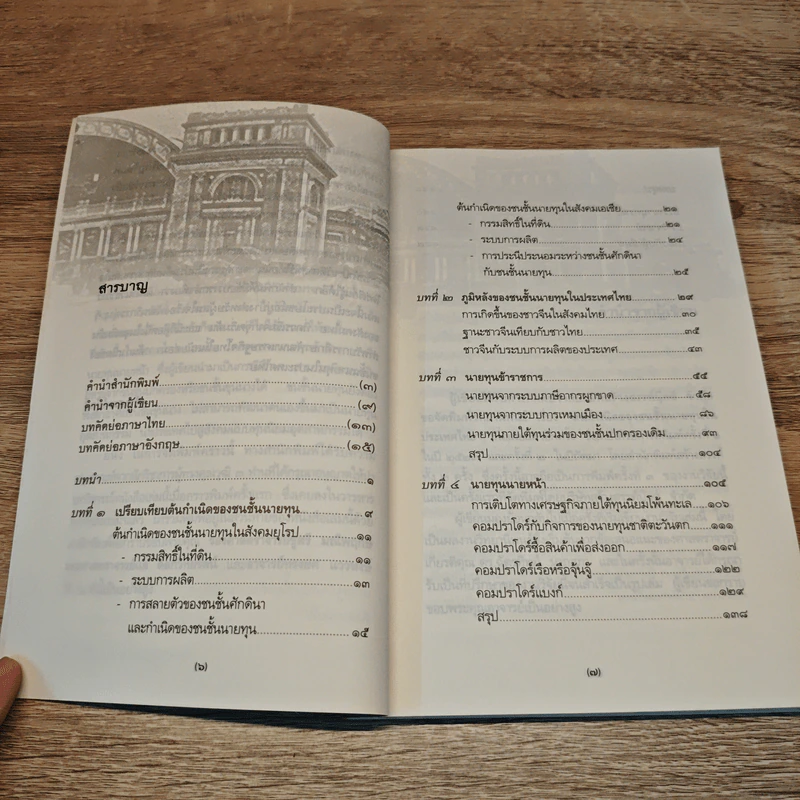 สารบาญ
คำนำสำนักพิมพ์..........(๓)
คำนำจากผู้เขียน..........(๙)
บทคัดย่อภาษาไทย..........(๑๓)
บทคัดย่อภาษาอังกฤษ..........(๑๕)
บทนำ..........๑
บทที่ ๑ เปรียบเทียบต้นกำเนิดของชนชั้นนายทุน..........๙
ต้นกำเนิดของชนชั้นนายทุนในสังคมยุโรป..........๑๑
- กรรมสิทธิ์ในที่ดิน..........๑๑
- ระบบการผลิต..........๑๓
- การสลายตัวของชนชั้นศักดินา
และกำเนิดของชนชั้นนายทุน..........๑๕
(๖)
ต้นกำเนิดของชนชั้นนายทุนในสังคมเอเชีย..........๒๑
- กรรมสิทธิ์ในที่ดิน..........๒๑
- ระบบการผลิต..........๒๔
- การประนีประนอมระหว่างชนชั้นศักดินา
กับชนชั้นนายทุน..........๒๕
บทที่ ๒ ภูมิหลังของชนชั้นนายทุนในประเทศไทย..........๒๙
การเกิดขึ้นของชาวจีนในสังคมไทย..........๓๐
ฐานะชาวจีนเทียบกับชาวไทย..........๓๕
ชาวจีนกับระบบการผลิตของประเทศ..........๔๓
บทที่ ๓ นายทุนข้าราชการ..........๕๕
นายทุนจากระบบภาษีอากรผูกขาด..........๕๘
นายทุนจากระบบการเหมาเมือง..........๘๖
นายทุนภายใต้ทุนร่วมของชนชั้นปกครองเดิม..........๙๓
สรุป..........๑๐๔
บทที่ ๔ นายทุนนายหน้า..........๑๐๕
การเติบโตทางเศรษฐกิจภายใต้ทุนนิยมโพ้นทะเล..........๑๐๖
คอมปราโดร์กับกิจการของนายทุนชาติตะวันตก..........๑๑๑
คอมปราโดร์ซื้อสินค้าเพื่อส่งออก..........๑๑๗
คอมปราโดร์เรือหรือจุ้นจู๊..........๑๒๒
คอมปราโดร์แบงก์..........๑๒๙
สรุป..........๑๓๘
(๗)